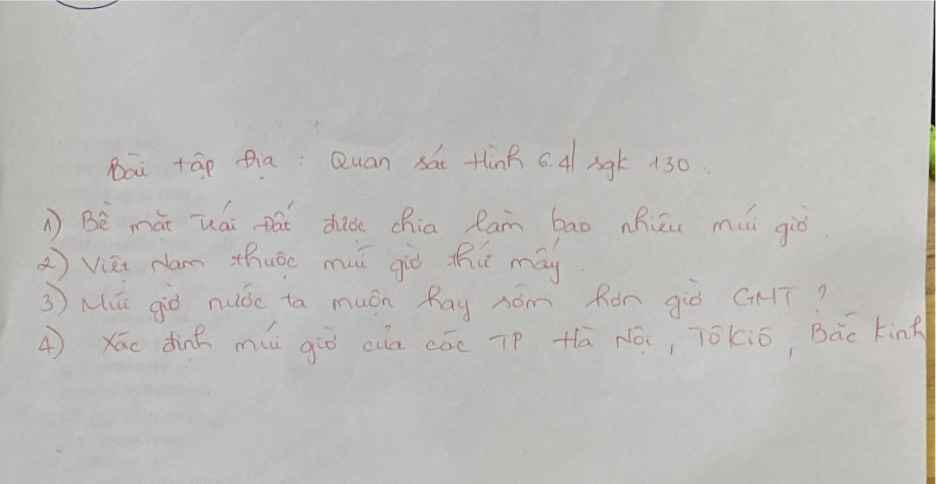 Bài tập Địa : Quan sát Hình 6.4/ sgk 130.
1) Bề mặt Trái Đất được chia làm bao nhiêu múi giờ.
2) Việt Nam thuộc múi giờ thứ mấy.
3) Múi giờ nước ta muộn hay sớm hơn giờ GMT ?
4) Xác định múi giờ của các TP Hà Nội, Tôkiô, Bắc Kinh